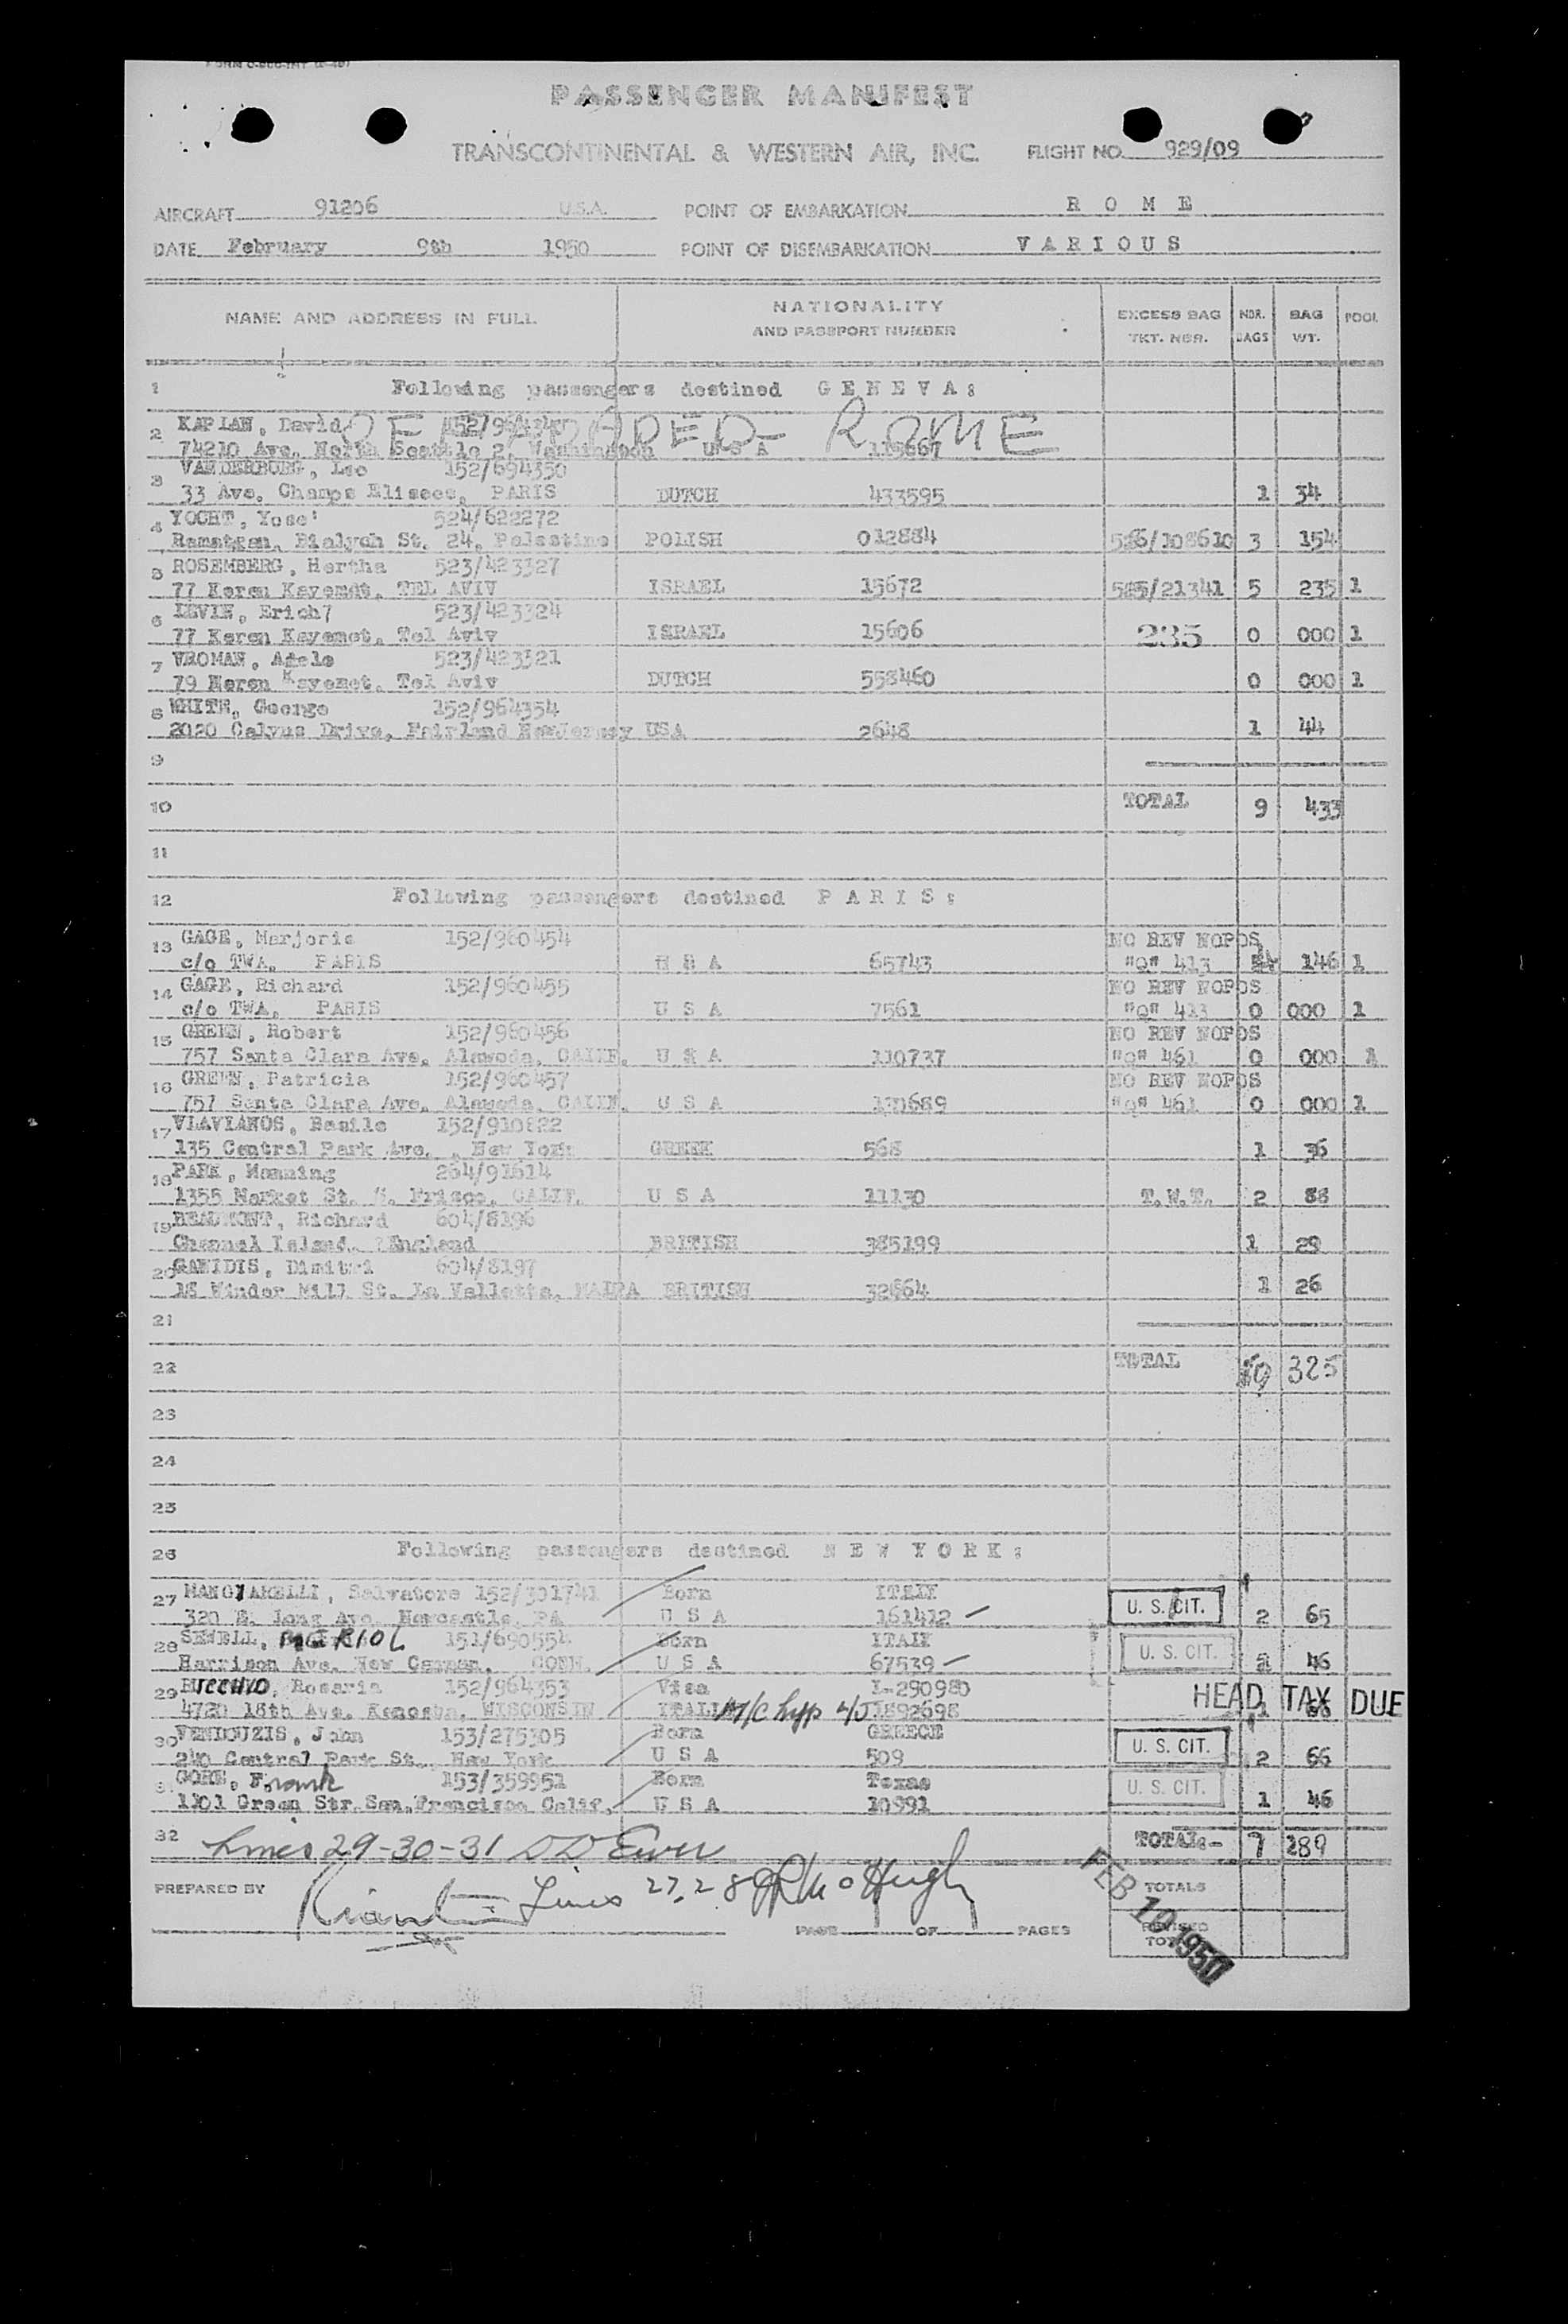 PASSENGER MANIFEST
TRANSCONTINENTAL & WESTERN AIR, INC. FLIGHT NO. 929/09
AIRCRAFT 91206 U.S.A. POINT OF EMBARKATION R O M E
DATE February 9th 1950 POINT OF DISEMBARKATION V A R I O U S
NAME AND ADDRESS IN FULL NATIONALITY AND PASSPORT NUMBER EXCESS BAG TKT. NBR. NBR. BAGS BAG WT. POOL
1 Following passengers destined G E N E V A :
2 KAPLAN, David ROME
74210 Ave. North Seattle 2, Washington U S A 115667
3 VANDERBURG, Leo 152/694350
33 Ave. Champs Elisees, PARIS DUTCH 433595 1 34
4 YOCHT, Yose' 524/622272
Ramatgan, Bialych St. 24, Palestine POLISH 012884 526/108610 3 154
5 ROSEMBERG, Hertha 523/423327
77 Keren Kayemdt, TEL AVIV ISRAEL 15672 525/21341 5 235 1
6 LEVIN, Erich 523/423324
77 Keren Kayemet, Tel Aviv ISRAEL 15606 235 0 000 1
7 VROMAN, Adele 523/423321
79 Keren Kayemet, Tel Aviv DUTCH 558460 0 000 1
8 WHITE, George 152/964354
2020 Calyus Drive, Fairland NewJersey USA 2648 1 44
9
10 TOTAL 9 433
11
12 Following passengers destined P A R I S :
13 GAGE, Marjorie 152/960454 NO REV NOPOS
c/o TWA, PARIS U S A 65743 "O" 413 146 1
14 GAGE, Richard 152/960455 NO REV NOPOS
c/o TWA, PARIS U S A 7561 "O" 413 0 000 1
15 GREEN, Robert 152/960456 NO REV NOPOS
757 Santa Clara Ave, Alameda, CALIF. U S A 110737 "O" 461 0 000 1
16 GREEN, Patricia 152/960457 NO REV NOPOS
757 Santa Clara Ave. Alameda, CALIF. U S A 130689 "O" 461 0 000 1
17 VLAVIANOS, Basile 152/910822
135 Central Park Ave. , New York GREEK 568 1 36
18 PARK, Momming 264/91614
1355 Market St. S. Frisco, CALIF. U S A 11130 T.W.T. 2 88
19 BEAUMONT, Richard 604/8196
Channel Island, England BRITISH 385199 1 29
20 GANIDIS, Dimitri 604/8197
18 Winder Mill St. La Valletta, MALTA BRITISH 32864 1 26
21
22 TOTAL 325
23
24
25
26 Following passengers destined N E W Y O R K :
27 MANGIARELLI, Salvatore 152/301741 Born ITALY
320 E. Long Ave. Newcastle, PA U S A 161412 U. S. CIT. 2 65
28 SEWELL, 151/690554 Born ITALY
Harrison Ave. New Canaan, CONN. U S A 67539 U. S. CIT. 46
29 BUCCHIO, Rosaria 152/964353 Visa I-290980 HEAD TAX DUE
4720 18th Ave. Kenosha, WISCONSIN 1892698 1 66
30 VENDOUZIS, John 153/275305 Born GREECE
240 Central Park St. New York U S A 509 U. S. CIT. 2 66
31 GORE, Frank 153/359951 Born Texas
1101 Green Str. San Francisco Calif. U S A 10991 U. S. CIT. 1 46
32 Lines 29-30-31 TOTAL:- 7 289
PREPARED BY Lines 27, 28 McHugh TOTALS
PAGE 1 OF 1 PAGES REVISED TOTALS
FEB 10 1950